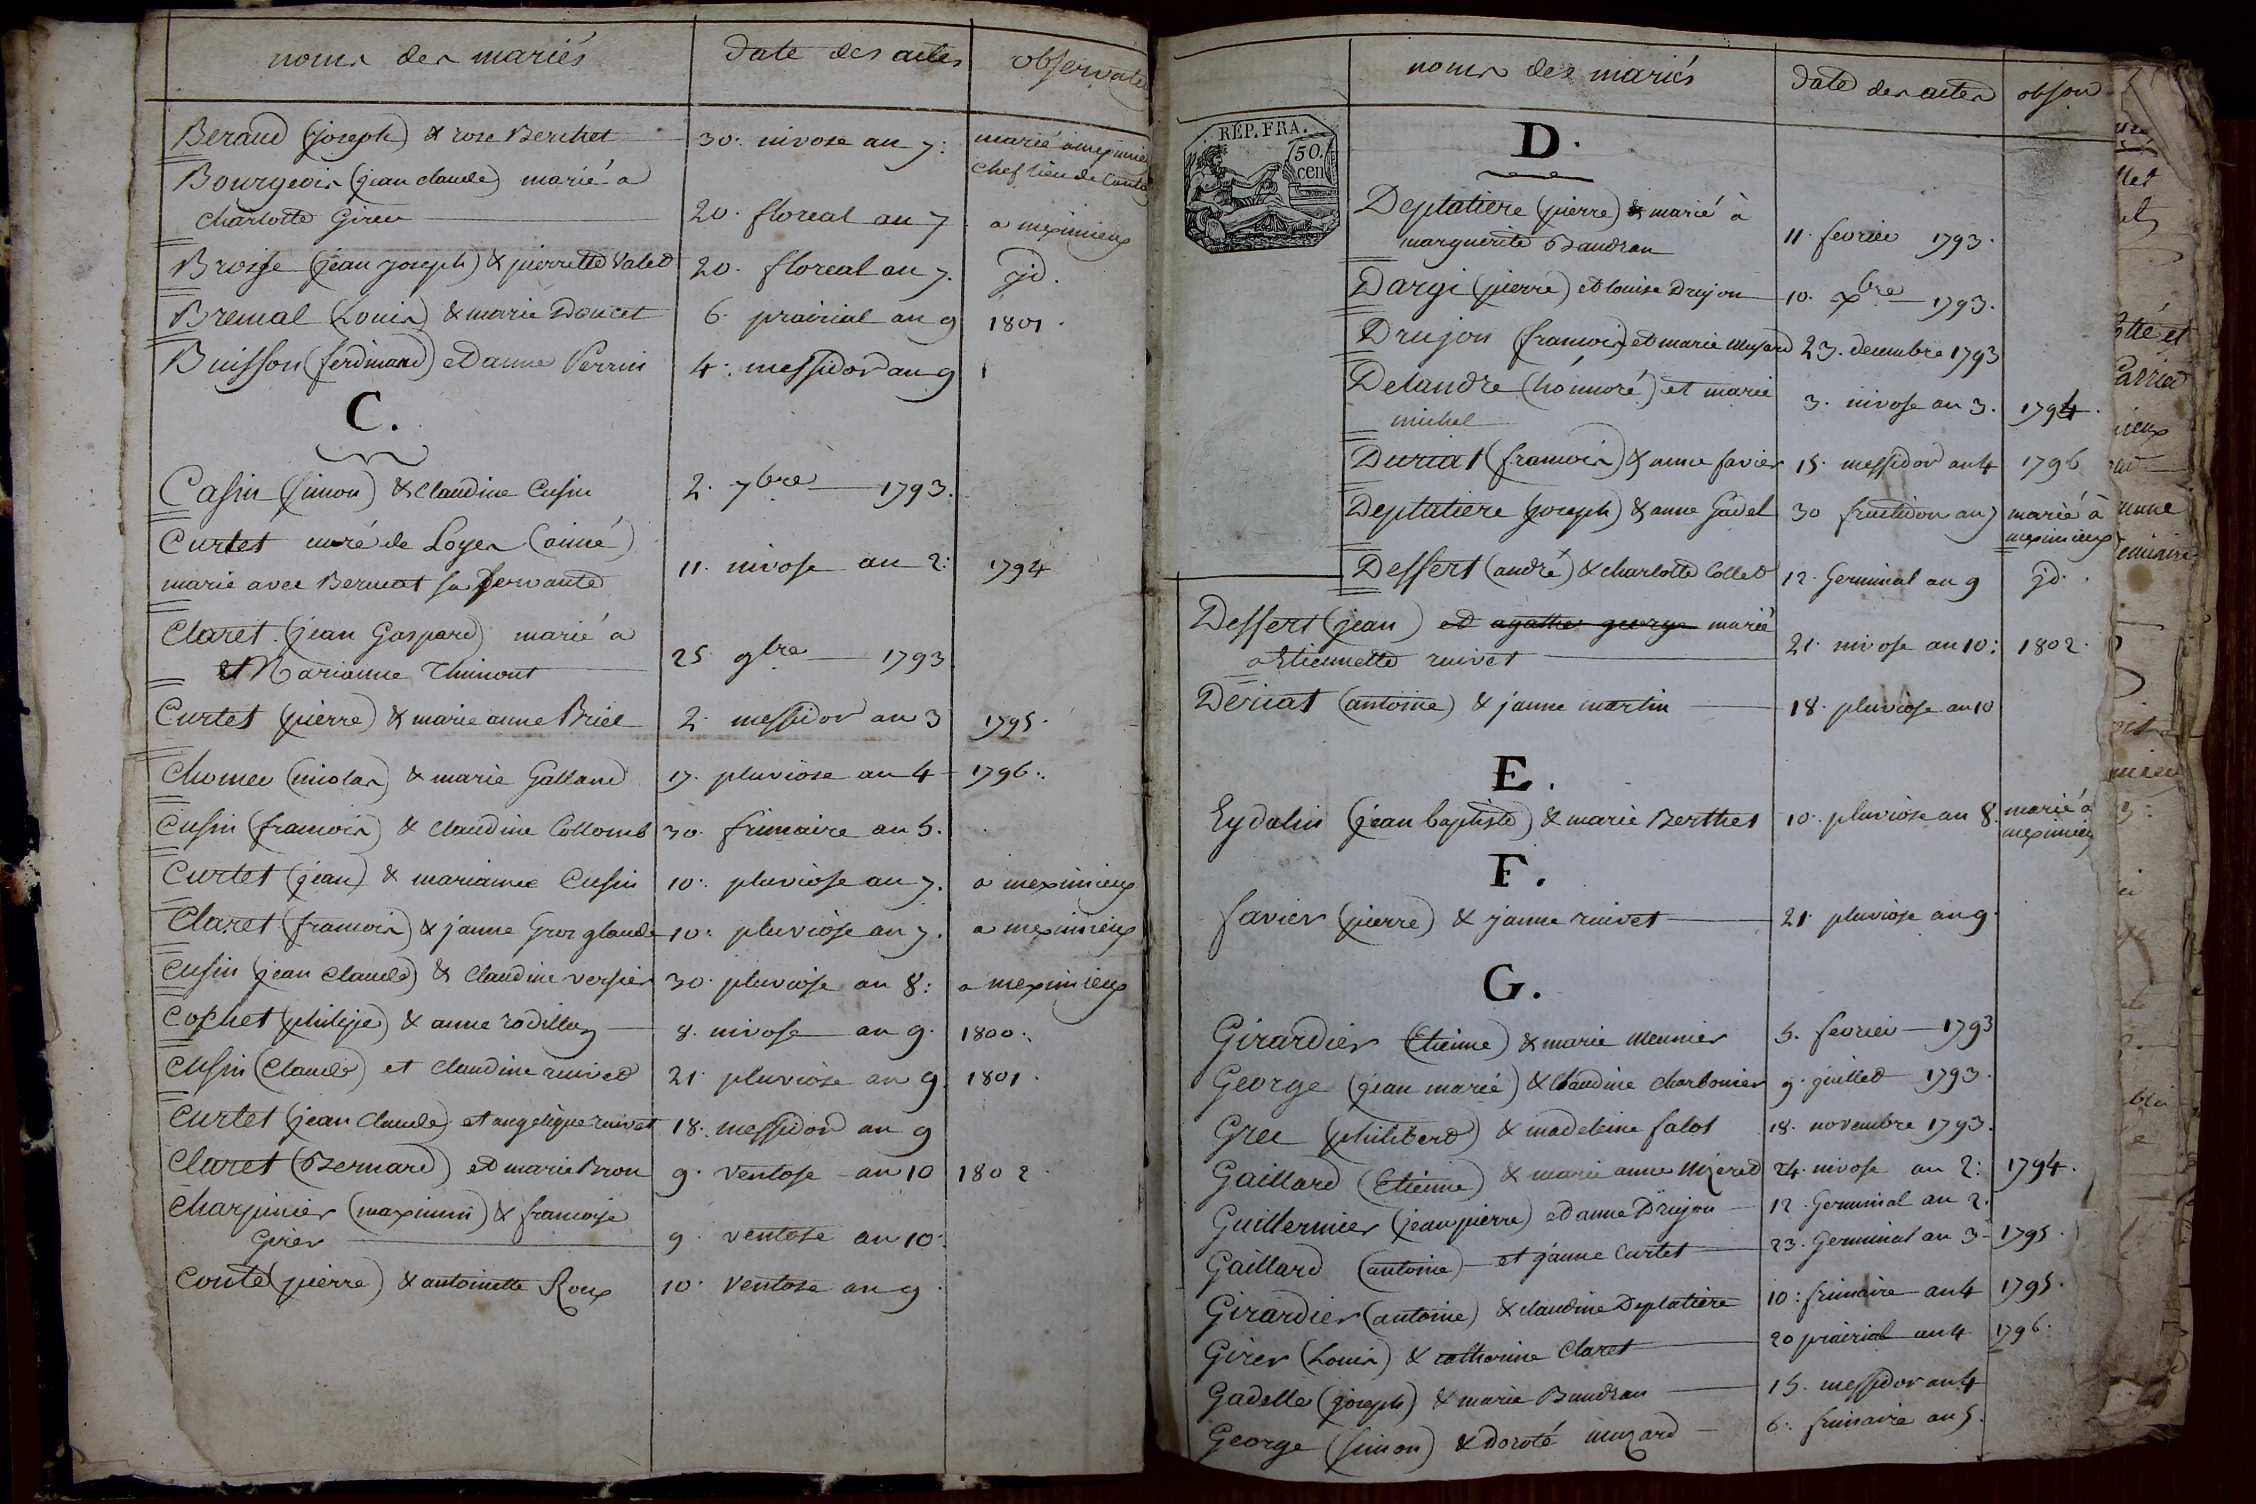 noms des mariés date des actes observat
Beraud (joseph) & rose Berchet 30. nivose an 7. marié a meximie
chef lieu de Cant
Bourgeois (jean claude) marié a
charlotte Girer 20. floreal an 7 a meximieux
Brosse (jean joseph) & pierrette Valet 20. floreal an 7. jd.
Bremal (Louis) & marie Doucet 6. prairial an 9 1801.
Buisson (ferdinand) et anne Perrin 4. messidor an 9
C.
Casin (simon) & Claudine Cusin 2. 7bre 1793.
Curtet curé de Loyes (aimé)
marie avec Bernat sa servante 11. nivose an 2: 1794
Claret (jean Gaspard) marié a
et Marianne Thimont 25 9bre 1793
Curtet (pierre) & marie anne Briel 2. messidor an 3 1795.
Chomer (nicolas) & marie Galland 17. pluviose an 4 1796.
Cusin (francois) & Claudine Collomb 30. frimaire an 5.
Curtet (jean) & marianne Cusin 10. pluviose an 7. a meximieux
Claret (francois) & janne Gros glaude 10. pluviose an 7. a meximieux
Cusin (jean Claude) & Claudine versier 30. pluviose an 8: a meximieux
Cochet (philipe) & anne 8. nivose an 9. 1800.
Cusin (Claude) et claudine ruivet 21. pluviose an 9. 1801.
Curtet (jean Claude) et angelique ruivet 18. messidor an 9
Claret (Bernard) et marie Bron 9. ventose an 10 1802.
Charpinier (maximin) & francoise
Girer 9. ventose an 10.
Conte (pierre) & antoinette Roux 10. ventose an 9.
noms des mariés date des actes obson
RÉP. FRA.
50.
cen
D.
Deplatiere (pierre) & marié à
marguerite Baudran 11. fevrier 1793.
Dargi (pierre) et louise Drujon 10. Xbre 1793.
Drujon (francois) et marie muzard 23. decembre 1793
Delandre (hónnoré) et marie
michel 3. nivose an 3. 1794.
Duriat (francois) & anne favier 15. messidor an 4 1796
Deplatiere (joseph) & anne Gadel 30 fructidor an 7 marié à
meximieux
Dessert (andré) & charlotte Collet 12. Germinal an 9 jd.
Dessert (jean) et agathe george marié
a Etiennette ruivet 21. nivose an 10: 1802.
Deriat (antoine) & janne martin 18. pluviose an 10
E.
Eydalin (jean baptiste) & marie Berthet 10. pluviose an 8. marié a
meximieu
F.
favier (pierre) & janne ruivet 21. pluviose an 9.
G.
Girardier (Etienne) & marie Meunier 5. fevrier 1793
George (jean marié) & Claudine charbonier 9. juillet 1793.
Grec (philibert) & madeleine falot 18. novembre 1793.
Gaillard (Etienne) & marie anne 24. nivose an 2: 1794.
Guillermier (jean pierre) et anne Drujon 12. Germinal an 2.
Gaillard (antoine) et janne Curtet 23. Germinal an 3 1795.
Girardier (antoine) & claudine Deplatiere 10: frimaire an 4 1795.
Girer (Louis) & catherine Claret 20 prairial an 4 1796.
Gadelle (joseph) & marie Baudran 15. messidor an 4
George (simon) & doroté muzard 6. frimaire an 5.